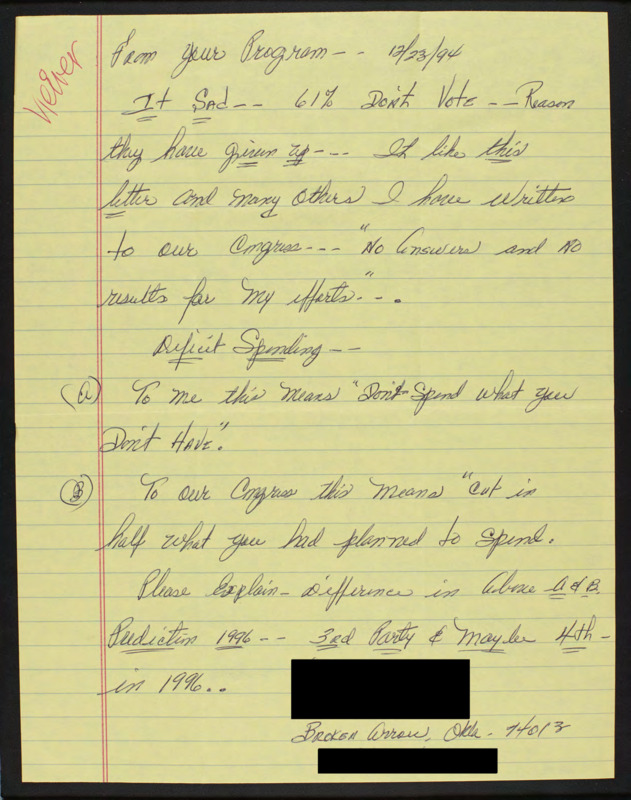 From your Program -- 12/23/94
It Sad -- 61% Don't Vote -- Reason
they have given up --- It like this
letter and many others I have written
to our Congress --- "No answers and no
results for my efforts" -- .
Deficit Spending --
(A) To me this means "Don't Spend what you
Don't Have".
(B) To our Congress this means "Cut in
half what you had planned to spend.
Please Explain - difference in Above A & B.
Prediction 1996 -- 3rd Party & Maybe 4th -
in 1996..
Broken Arrow, Okla - 74013